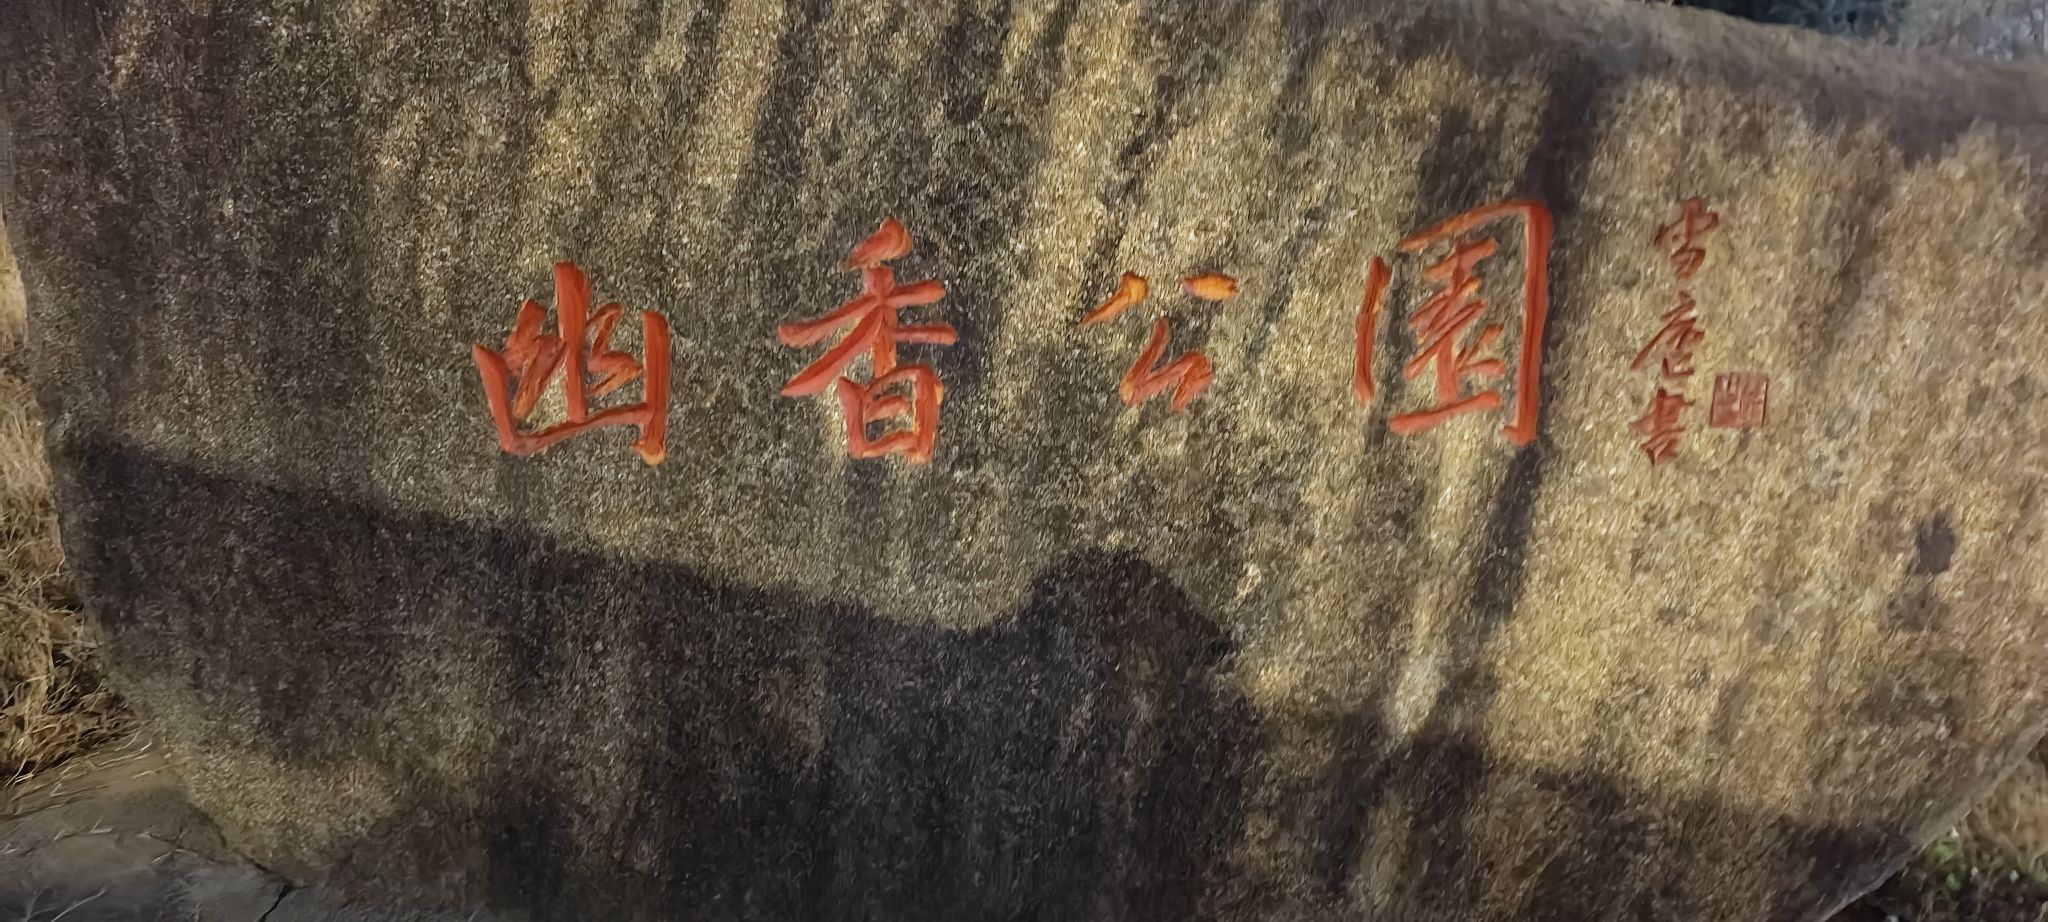 幽香公園
雪庵書